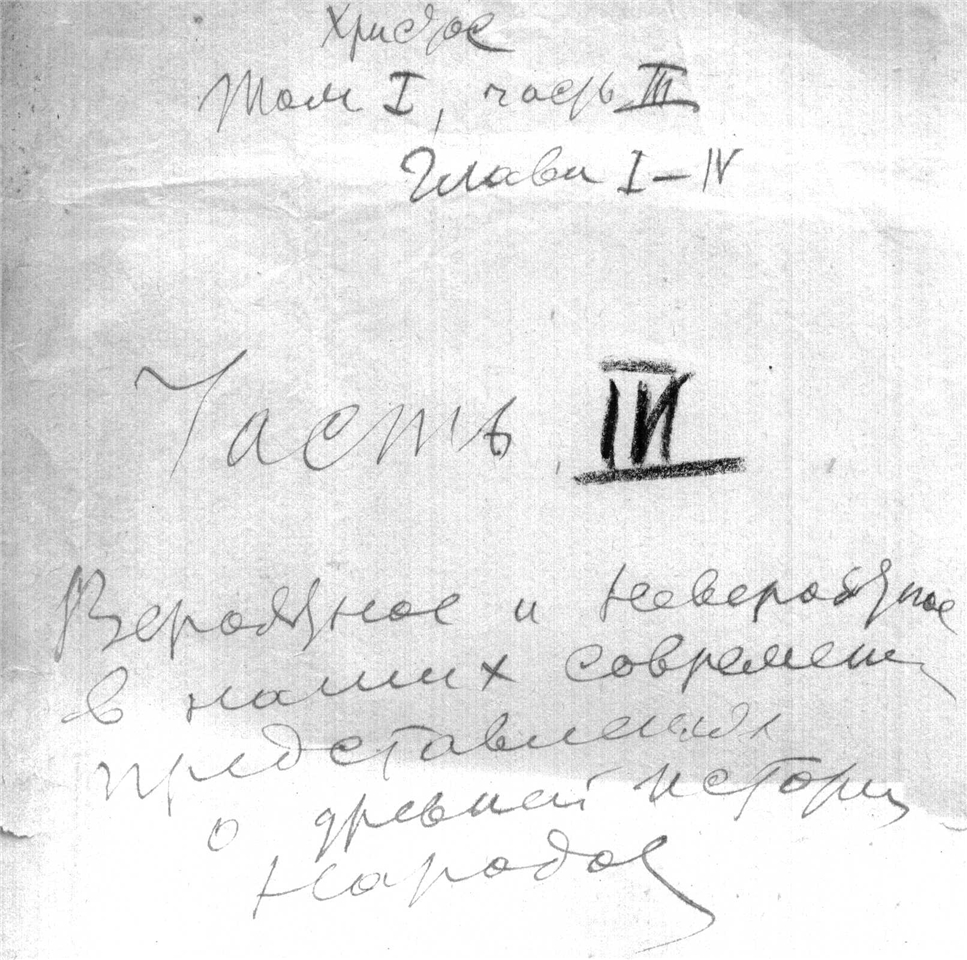 Христос
Том I, часть III
Главы I–IV
Часть III
Вероятное и невероятное
в наших современн
представлениях
о древней истории
народов